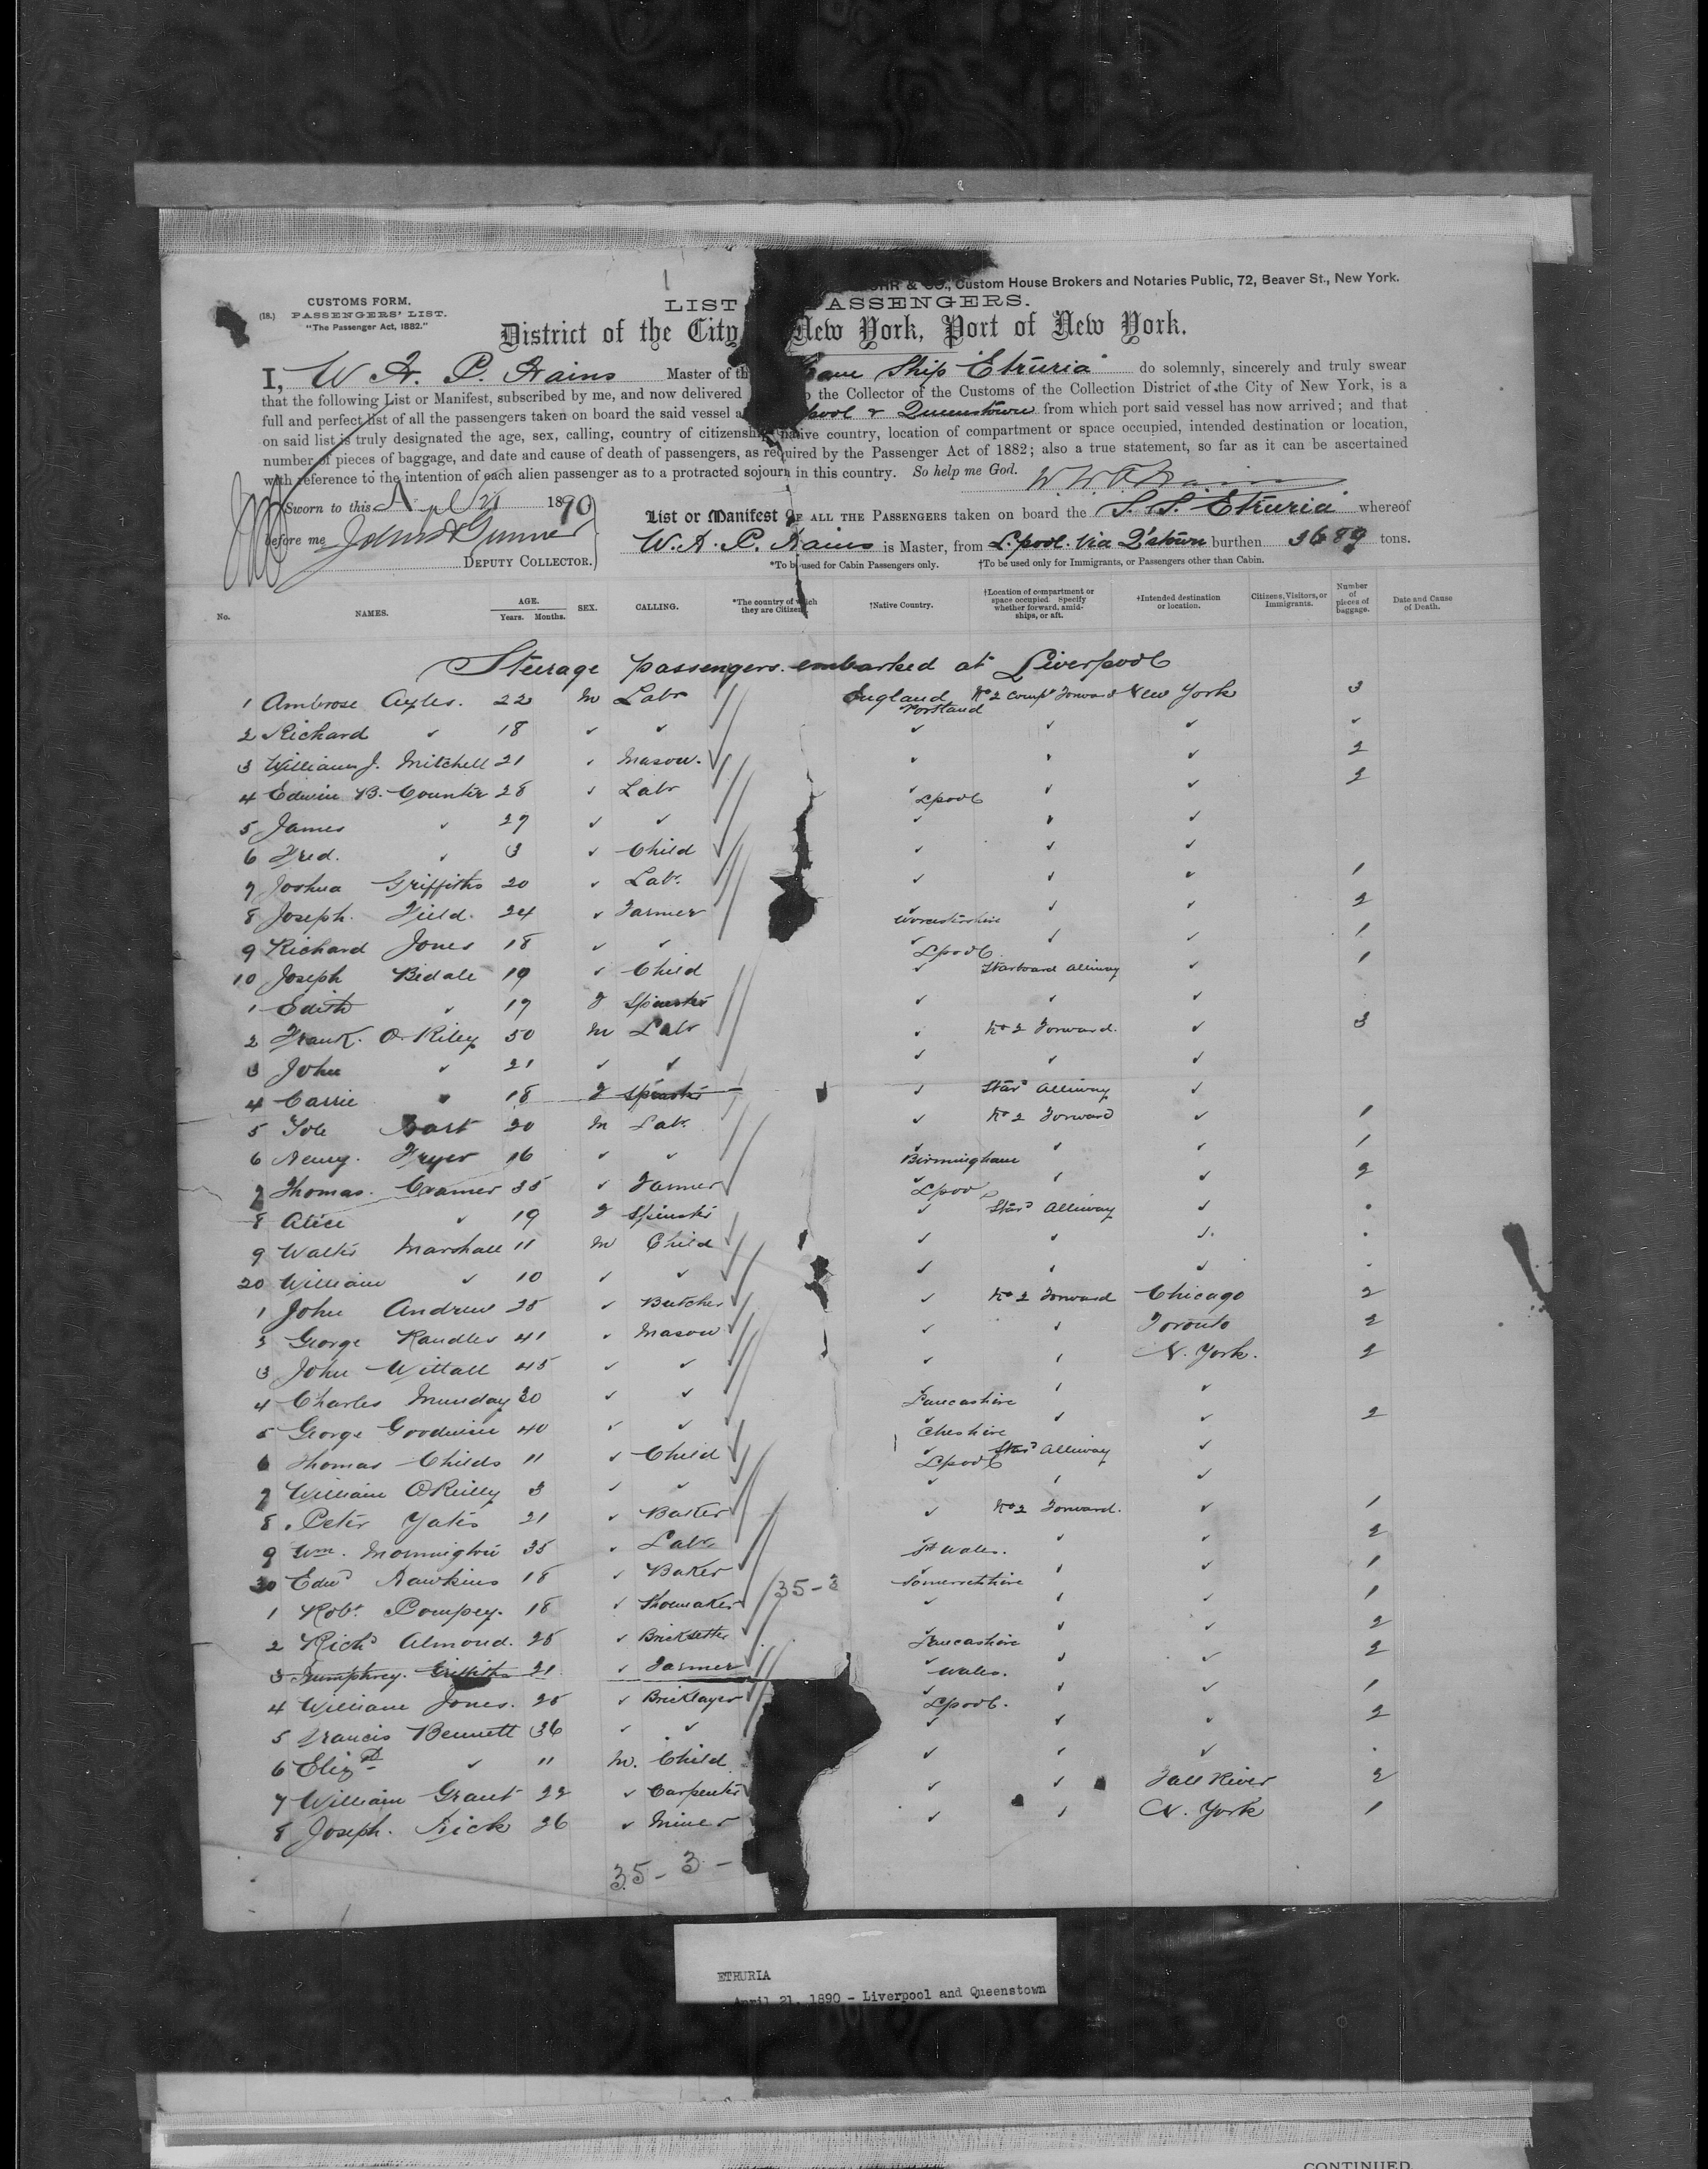 CUSTOMS FORM.
(18.) PASSENGERS' LIST.
"The Passenger Act, 1882."
& CO., Custom House Brokers and Notaries Public, 72, Beaver St., New York.
LIST ASSENGERS.
District of the City New York, Port of New York.
I, W. H. P. Hains Master of th Ship "Etruria" do solemnly, sincerely and truly swear
that the following List or Manifest, subscribed by me, and now delivered the Collector of the Customs of the Collection District of the City of New York, is a
full and perfect list of all the passengers taken on board the said vessel a pool & Queenstown from which port said vessel has now arrived; and that
on said list is truly designated the age, sex, calling, country of citizenship, native country, location of compartment or space occupied, intended destination or location,
number of pieces of baggage, and date and cause of death of passengers, as required by the Passenger Act of 1882; also a true statement, so far as it can be ascertained
with reference to the intention of each alien passenger as to a protracted sojourn in this country. So help me God.
Sworn to this Apl 21 1890
before me
DEPUTY COLLECTOR.
List or Manifest OF ALL THE PASSENGERS taken on board the S.S. Etruria whereof
W. H. P. Hains is Master, from L.pool. via Q'stown burthen 3689 tons.
*To be used for Cabin Passengers only. †To be used only for Immigrants, or Passengers other than Cabin.
No. NAMES. AGE. Years. Months. SEX. CALLING. *The country of which they are Citizens. †Native Country. †Location of compartment or space occupied. Specify whether forward, amidships, or aft. †Intended destination or location. Citizens, Visitors, or Immigrants. Number of pieces of baggage. Date and Cause of Death.
Steerage passengers embarked at Liverpool
1 Ambrose Ayles. 22 M Labr England Portland No 2 Compt Forward New York 3
2 Richard 〃 18 〃 〃 〃 〃 〃 〃
3 William J. Mitchell 21 〃 Mason. 〃 〃 〃 2
4 Edwin B. Counter 28 〃 Labr 〃 Lpool 〃 〃 2
5 James 〃 27 〃 〃 〃 〃 〃
6 Fred. 〃 3 〃 Child 〃 〃 〃
7 Joshua Griffiths 20 〃 Labr. 〃 〃 〃 1
8 Joseph. Field. 24 〃 Farmer 〃 Worcestershire 〃 〃 2
9 Richard Jones 18 〃 〃 〃 Lpool 〃 〃 1
10 Joseph Bedale 19 〃 Child 〃 Starboard Alliway 〃 1
1 Edith 〃 17 F Spinster 〃 〃 〃
2 Frank. O'Riley 50 M Labr 〃 No 2 Forward. 〃 3
3 John 〃 21 〃 〃 〃 〃 〃
4 Carrie 〃 18 F Spinster 〃 Stard Alliway 〃
5 20 M Labr. 〃 No 2 Forward 〃 1
6 Henry. Fryer 16 〃 〃 〃 Birmingham 〃 〃 1
7 Thomas. Cramer 35 〃 Farmer 〃 Lpool 〃 〃 2
8 Alice 〃 19 F Spinster 〃 Stard Alliway 〃
9 Walter Marshall 11 M Child 〃 〃 〃
20 William 〃 10 〃 〃 〃 〃 〃
1 John Andrew 35 〃 Butcher 〃 No 2 Forward Chicago 2
2 George Randles 41 〃 Mason 〃 〃 Toronto 2
3 John Wittall 45 〃 〃 〃 〃 N. York. 2
4 Charles Munday 30 〃 〃 〃 Lancashire 〃 〃
5 George Goodwin 40 〃 〃 〃 Cheshire 〃 〃 2
6 Thomas Childs 11 〃 Child 〃 Lpool Stard Alliway 〃
7 William O'Reilly 3 〃 〃 〃 〃 〃
8 Peter Yates 21 〃 Baker 〃 No 2 Forward. 〃 1
9 Wm. 35 〃 Labr. 〃 Wales. 〃 〃 2
30 Edwd Hawkins 18 〃 Baker 〃 Somersetshire 〃 〃 1
35-3
1 Robt. Pompey. 18 〃 Shoemaker 〃 〃 〃 1
2 Richd Almond. 25 〃 Bricksetter 〃 Lancashire 〃 〃 2
3 Humphrey. Griffiths 21 〃 Farmer 〃 Wales. 〃 〃 2
4 William Jones. 25 〃 Bricklayer 〃 Lpool. 〃 〃 1
5 Francis Bennett 36 〃 〃 〃 〃 〃 2
6 Elizth 〃 11 M. Child 〃 〃 〃
7 William Grant 22 〃 Carpenter 〃 〃 Fall River 2
8 Joseph. Rick 26 〃 Miner 〃 〃 N. York 1
35-3-
ETRURIA
April 21, 1890 - Liverpool and Queenstown
CONTINUED